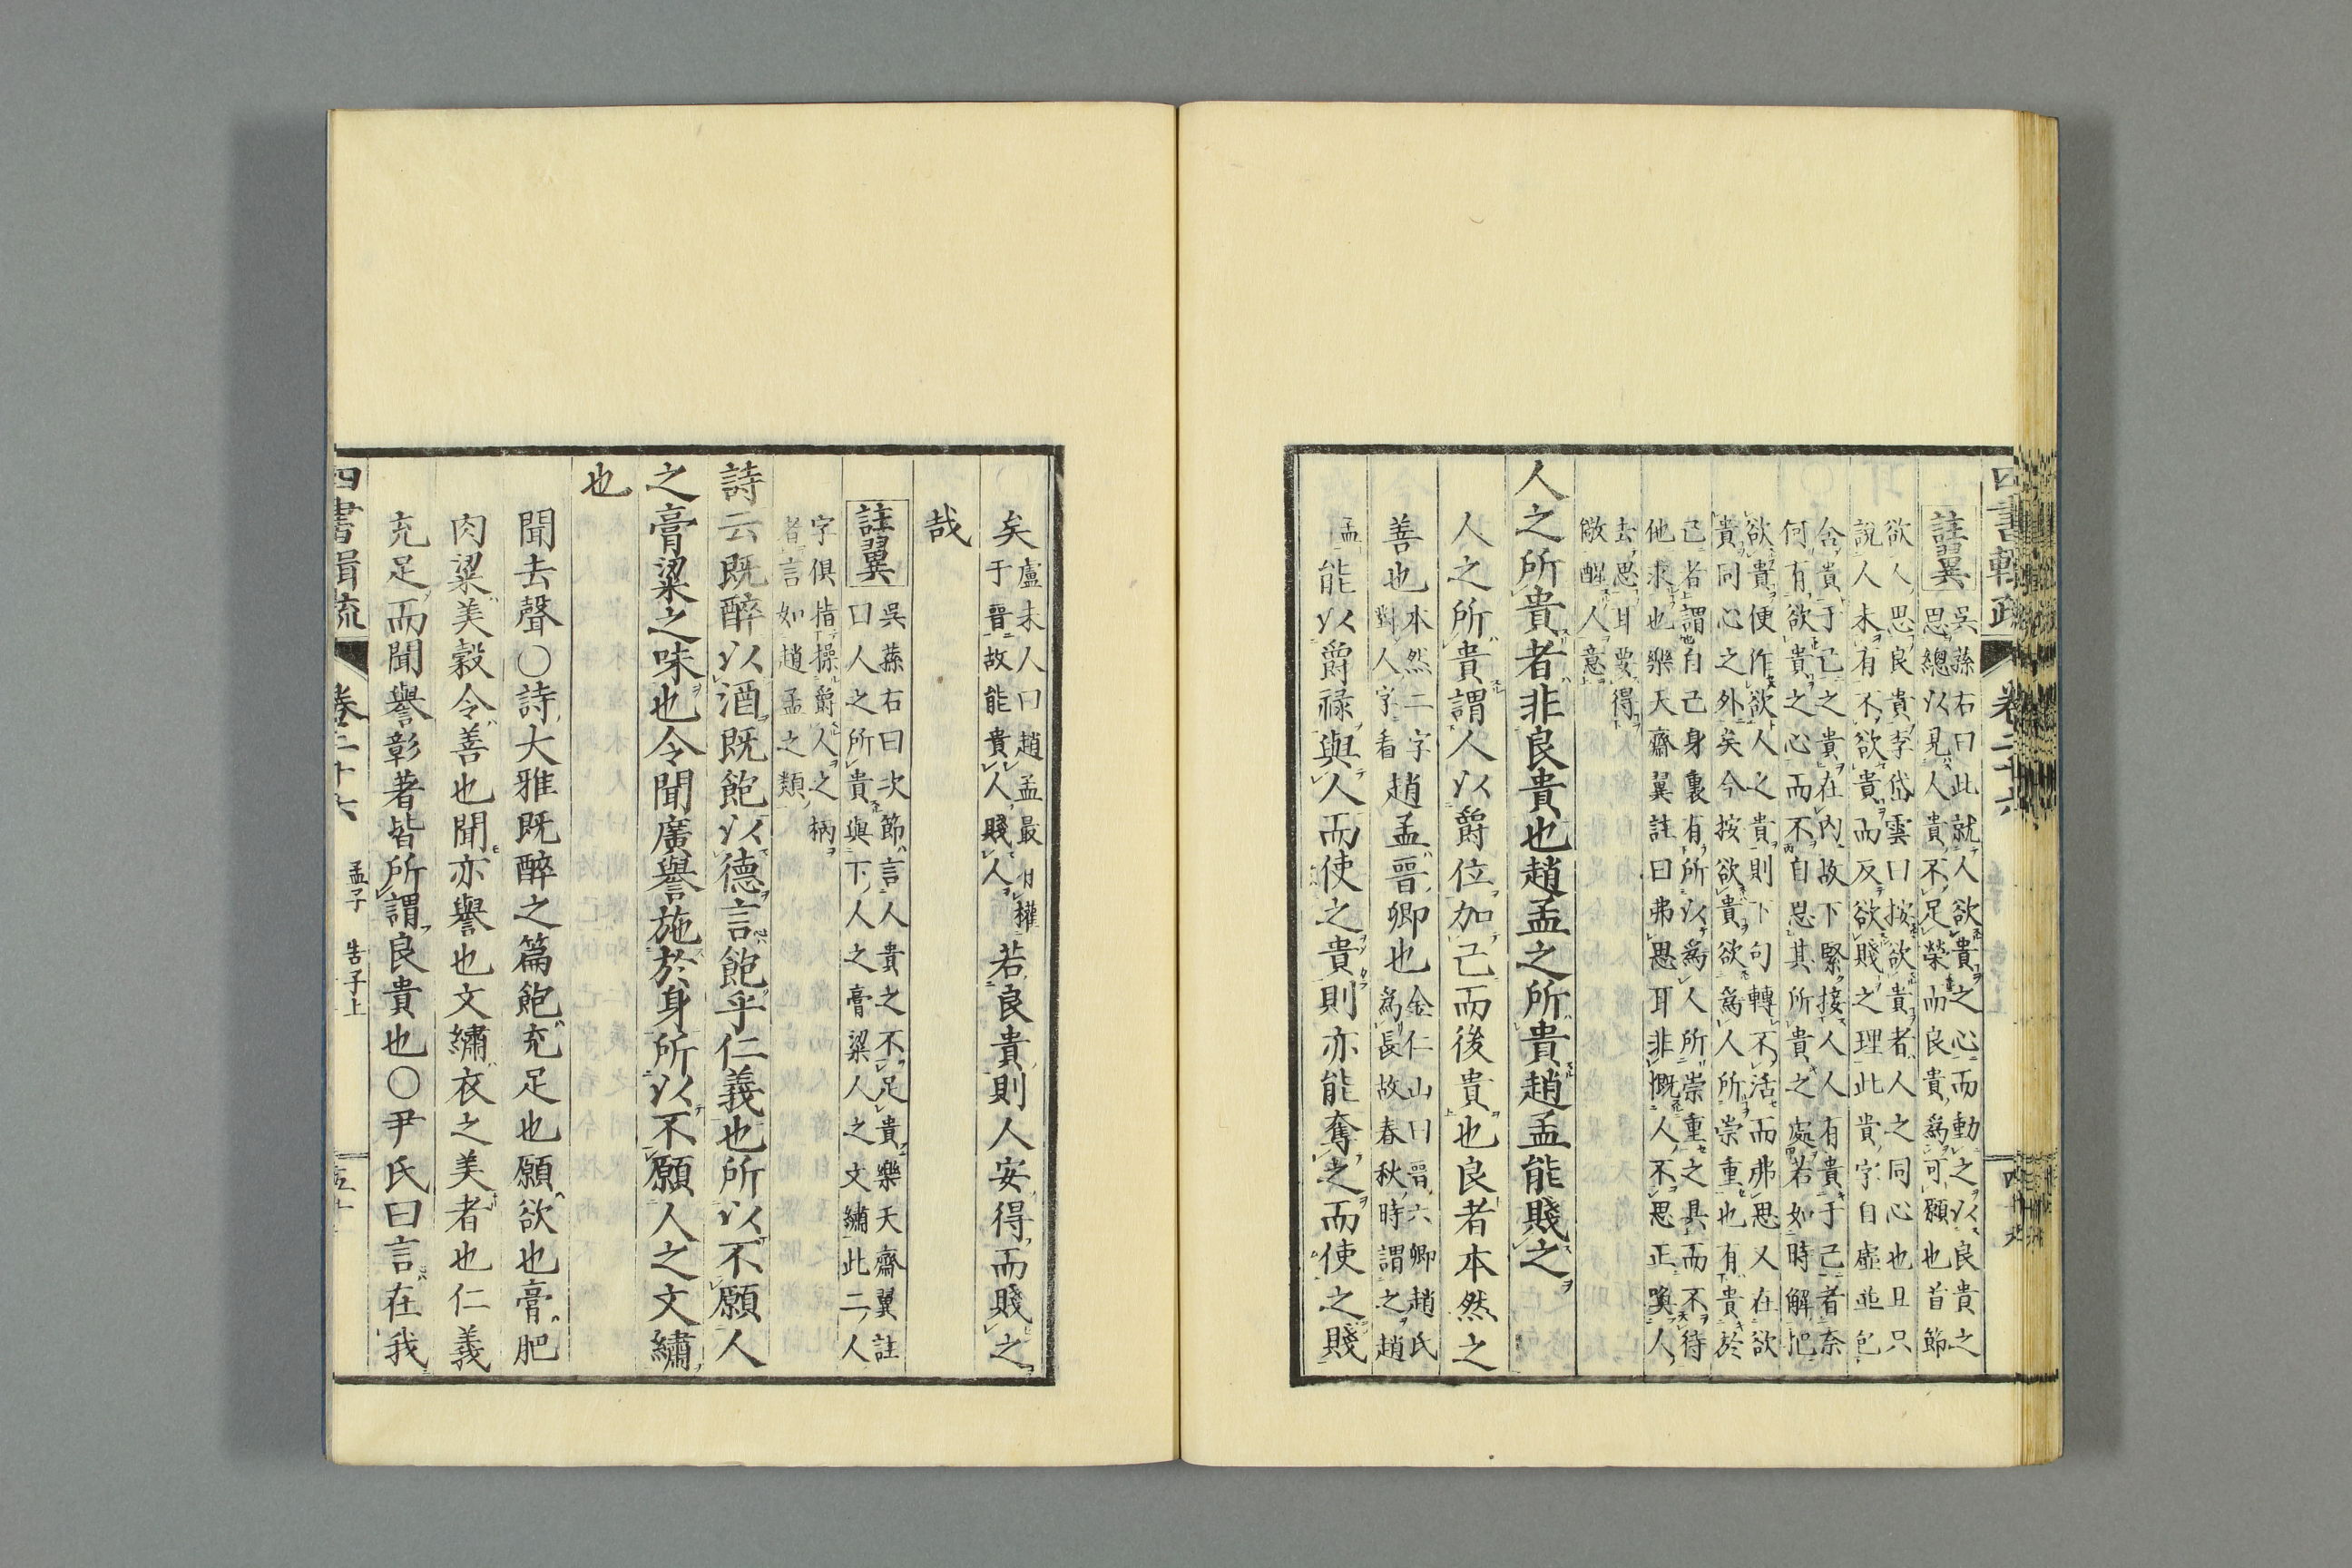 四書輯疏 卷二十六
註翼 吳蓀右曰此就人欲貴之心而動之以良貴之
思總以見人貴不足榮而良貴爲可願也首節
欲人思良貴李岱雲曰按欲貴者人之同心也且只
說人未有不欲貴而反欲賤之理此貴字自虛並包
含貴于己之貴在內故下緊接人人有貴于己者奈
何有欲貴之心而不自思其所貴之處若如時解把
欲貴便作欲人之貴則下句轉不活而弗思又在欲
貴同心之外矣今按欲貴欲爲人所崇重也有貴於
己者謂自己身裏有所以爲人所崇重之具而不待
他求也樂天齋翼註曰弗思耳非慨人不思正喚人
去思耳要得
儆醒人意
人之所貴者非良貴也趙孟之所貴趙孟能賤之
人之所貴謂人以爵位加己而後貴也良者本然之
善也本然二字
對人字看趙孟晉卿也金仁山曰晉六卿趙氏
爲長故春秋時謂之趙
孟能以爵祿與人而使之貴則亦能奪之而使之賤
矣盧未人曰趙孟最有權
于晉故能貴人賤人若良貴則人安得而賤之
哉
註翼 吳蓀右曰次節言人貴之不足貴樂天齋翼註
曰人之所貴與下人之膏粱人之文繡此二人
字俱指操爵人之柄
者言如趙孟之類
詩云既醉以酒既飽以德言飽乎仁義也所以不願人
之膏粱之味也令聞廣譽施於身所以不願人之文繡
也
聞去聲○詩大雅既醉之篇飽充足也願欲也膏肥
肉粱美穀令善也聞亦譽也文繡衣之美者也仁義
充足而聞譽彰著皆所謂良貴也○尹氏曰言在我
四書輯疏 卷二十六 孟子 告子上 五十